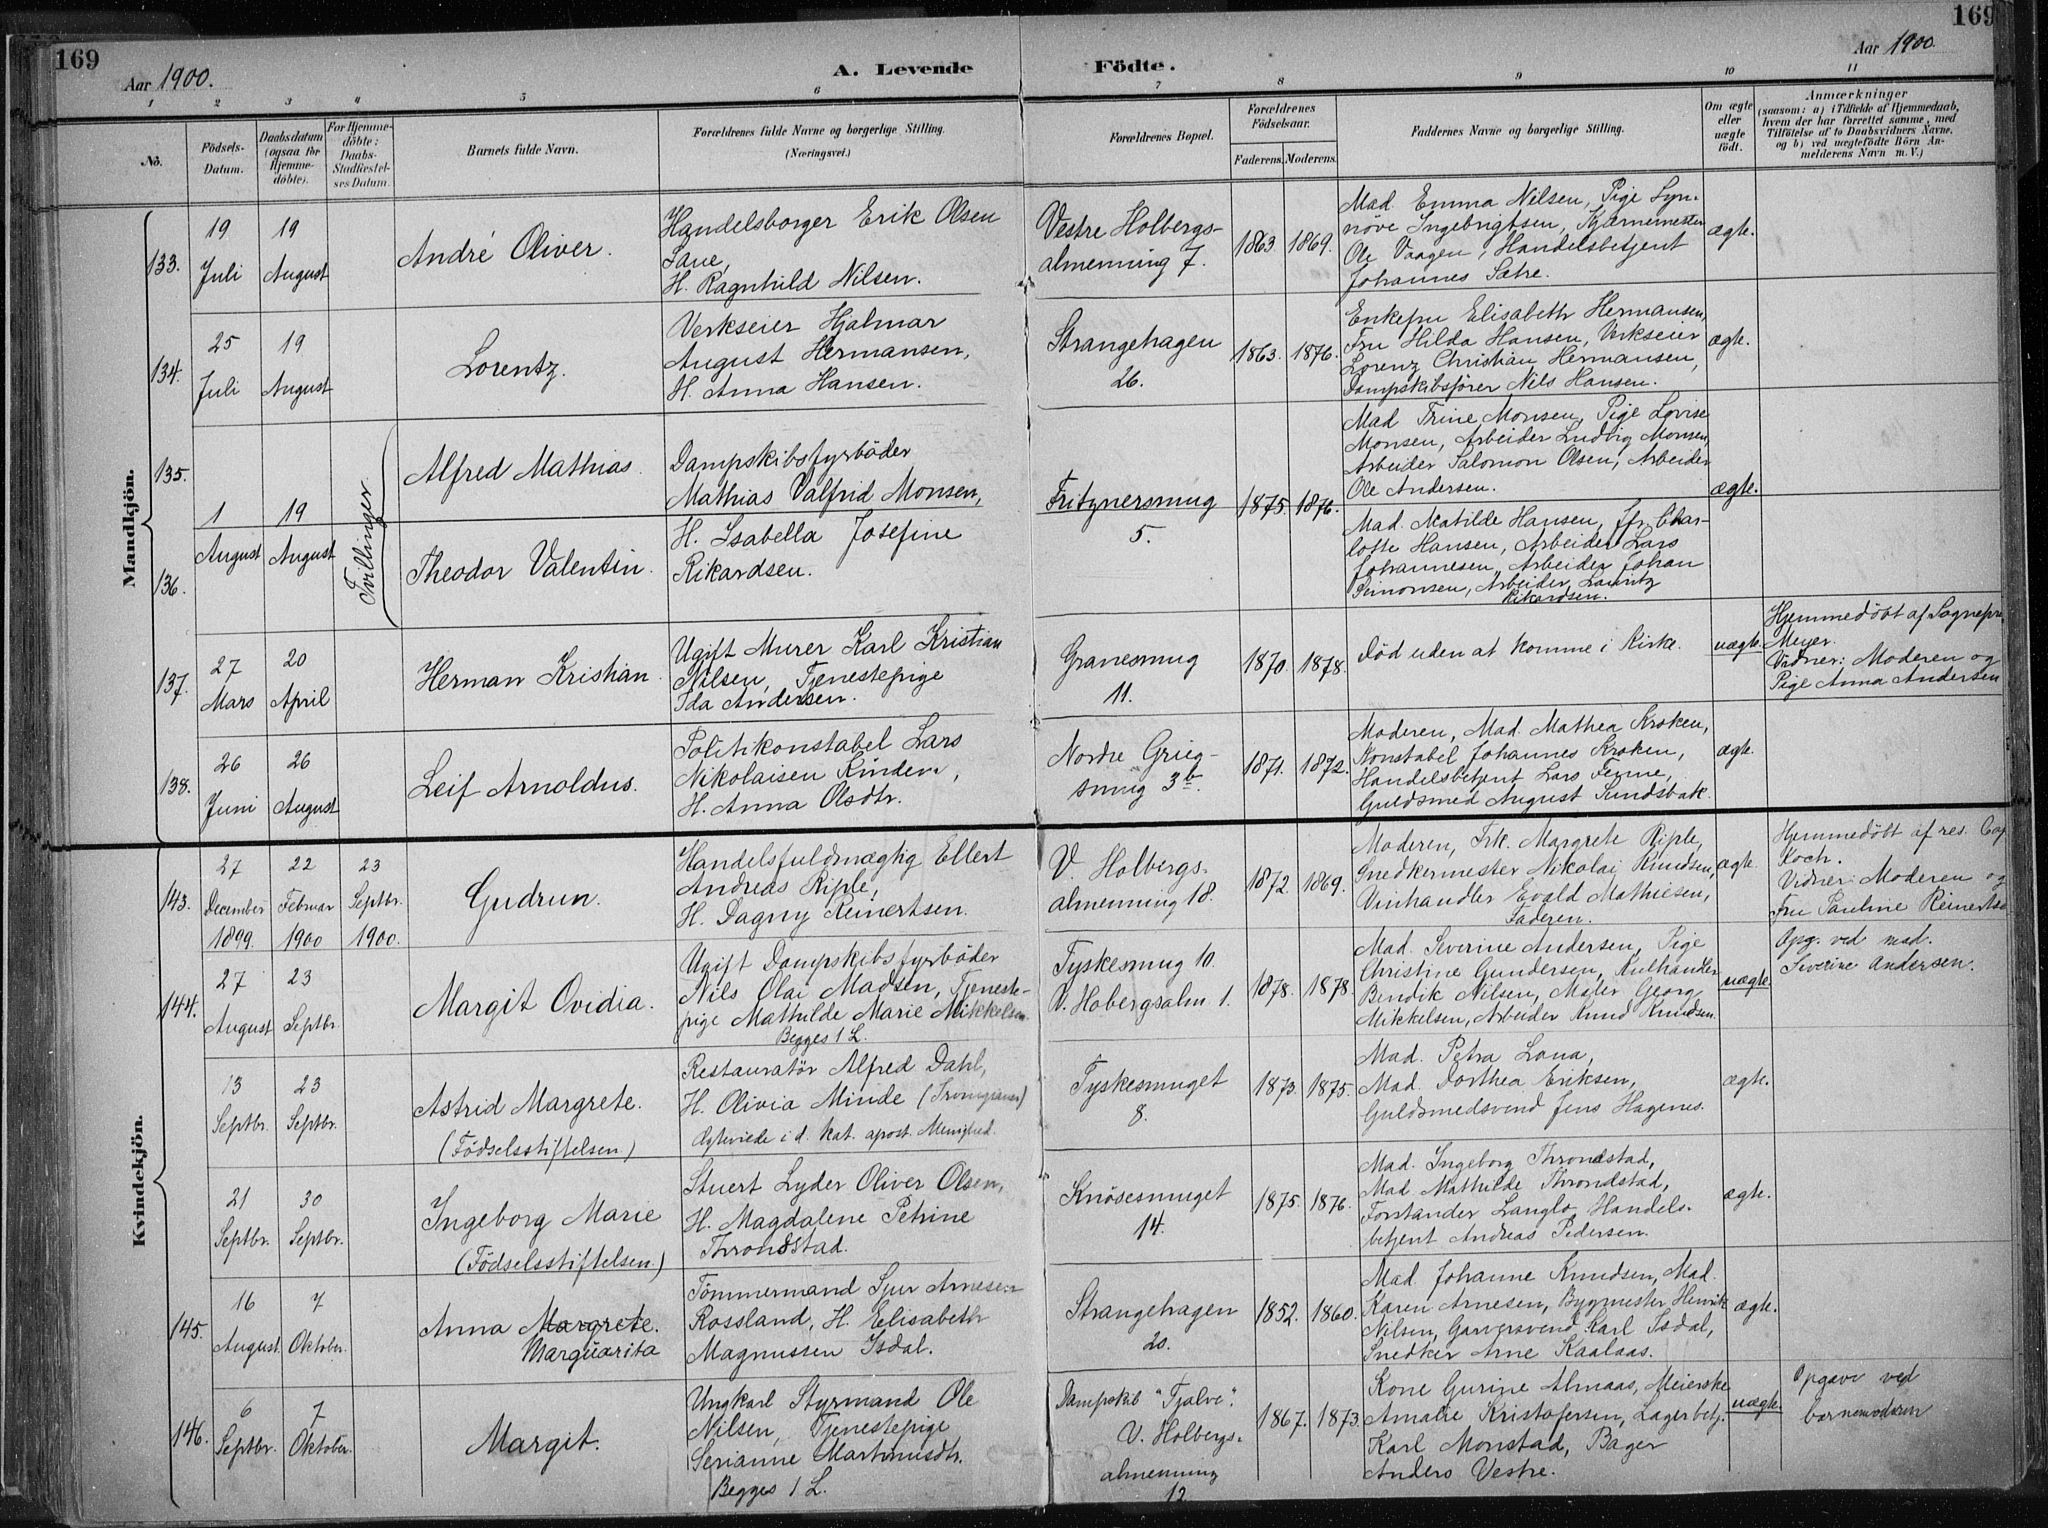 169
169
Aar 1900.
A. Levende
Fødte.
Aar 1900.
1 2 3 4 5 6 7 8 9 10 11
No.
Fødsels-
Datum.
Daabsdatum
(ogsaa for
Hjemme-
døbte).
For Hjemme-
døbte:
Daabs-
Stadfæstel-
ses Datum.
Barnets fulde Navn.
Forældrenes fulde Navne og borgerlige Stilling.
(Næringsvei.)
Forældrenes Bopæl.
Forældrenes
Fødselsaar.
Faderens. Moderens.
Faddernes Navne og borgerlige Stilling.
Om ægte
eller
uægte
født.
Anmærkninger
(saasom: a) i Tilfælde af Hjemmedaab,
hvem der har forrettet samme, med
Tilføielse af to Daabsvidners Navne,
og b) ved uægtefødte Børn An-
melderens Navn m. V.)
Mandkjön.
133.
19
Juli
19
August
André Oliver.
Handelsborger Erik Olsen
Tane,
H. Ragnhild Nilsen.
Vestre Holbergs-
almenning 7.
1863. 1869.
Mad Emma Nilsen, Pige Syn-
növe Ingebrigtsen, Kjærnemester
Ole Vaagen, Handelsbetjent
Johannes Sætre.
ægte.
134.
25
Juli
19
August
Lorentz.
Verkseier Hjalmar
August Hermansen,
H. Anna Hansen.
Strangehagen
26.
1863. 1876.
Enkefru Elisabeth Hermansen,
Fru Hilda Hansen, Verkseier
Lorenz Christian Hermansen,
Dampskibsfører Nils Hansen.
ægte.
135.
1
August
19
August
Tvillinger.
Alfred Mathias.
Dampskibsfyrböder
Mathias Valfrid Monsen,
H. Isabella Josefine
Rikardsen.
Fritznersmug
5.
1875. 1876.
Mad Trine Monsen, Pige Lovise
Monsen, Arbeider Ludvig Monsen,
Arbeider Salomon Olsen, Arbeider
Ole Andersen.
ægte.
136.
Theodor Valentin.
Mad. Matilde Hansen, Char-
lotte Hansen, Arbeider Lars
Johannesen, Arbeider Johan
Simonsen, Arbeider Lauritz
Rikardsen.
137.
27
Mars
20
April
Herman Kristian.
Ugift Murer Karl Kristian
Nilsen, Tjenestepige
Ida Andersen.
Granesmug
11.
1870. 1878.
Död uden at komme i Kirke.
uægte.
Hjemmedöbt af Sognepr.
Meyer.
Vidner: Moderen og
Pige Anna Andersen
138.
26
Juni
26
August
Leif Arnoldus.
Politikonstabel Lars
Nikolaisen Rinden,
H. Anna Olsdtr.
Nordre Grieg-
smug 3b.
1871. 1872.
Moderen, Mad. Mathea Kroken,
Konstabel Johannes Kroken,
Handelsbetjent Lars Ferne,
Guldsmed August Sundsbak.
ægte.
Kvindekjön.
143.
27
December
1899.
22
Februar
1900
23
Septbr.
1900.
Gudrun.
Handelsfuldmægtig Ellert
Andreas Riple,
H. Dagny Reinertsen.
V. Holbergs-
almenning 18.
1872 1869.
Moderen, Frk. Margrete Riple,
Snedkermester Nikolai Knudsen,
Vinhandler Evald Mathiesen,
Faderen.
ægte.
Hjemmedöbt af res. Cap.
Koch.
Vidner: Moderen og
Fru Pauline Reinertse
144.
27
August
23
Septbr.
Margit Ovidia.
Ugift Dampskibsfyrböder
Nils Olai Madsen, Tjeneste-
pige Mathilde Marie Mikkelsen.
Begges 1 L.
Tyskesmug 10.
V. Hobergsalm 1.
1878. 1878.
Mad. Severine Andersen, Pige
Christine Gundersen, Kulhandler
Bendik Nilsen, Maler Georg
Mikkelsen, Arbeider Knud Knudsen.
uægte.
Opg. ved mad.
Severine Andersen.
13
Septbr.
23
Septbr.
Astrid Margrete.
(Födselsstiftelsen)
Restauratör Alfred Dahl,
H. Olivia Minde (Irvingianer)
Ægteviede i d. kat. apost. Menighed.
Tyskesmuget
8.
1873. 1875.
Mad. Petra Lona,
Mad. Dorthea Eriksen,
Guldsmedsvend Jens Hagenes.
ægte.
21
Septbr.
30
Septbr.
Ingeborg Marie
(Födselsstiftelsen.)
Stuert Lyder Oliver Olsen,
H. Magdalene Petrine
Throndstad.
Knösesmuget
14.
1875. 1876.
Mad. Ingeborg Throndstad,
Mad Mathilde Throndstad,
Forstander Langlo, Handels-
betjent Andreas Pedersen.
ægte.
145.
16
August
7
Oktober.
Anna Margrete.
Marguarita
Tömmermand Sjur Arnesen
Rossland, H. Elisabeth
Magnussen Isdal.
Strangehagen
20.
1852. 1860.
Mad. Johanne Knudsen, Mad.
Karen Arnesen, Bygmester Henrik
Nilsen, Garversvend Karl Isdal,
Snedker Arne Kaalaas.
ægte.
146.
6
Septbr.
7
Oktober.
Margit.
Ungkarl Styrmand Ole
Nilsen, Tjenestepige
Serianne Martinusdtr.
Begges 1 L.
Dampskib "Tjalve".
V. Holbergs-
almenning
12.
1867. 1873.
Kone Gurine Almaas, Meierske
Amalie Kristofersen, Lagerbetj.
Karl Monstad, Bager
Anders Vestre.
uægte.
Opgave ved
barnemoderen